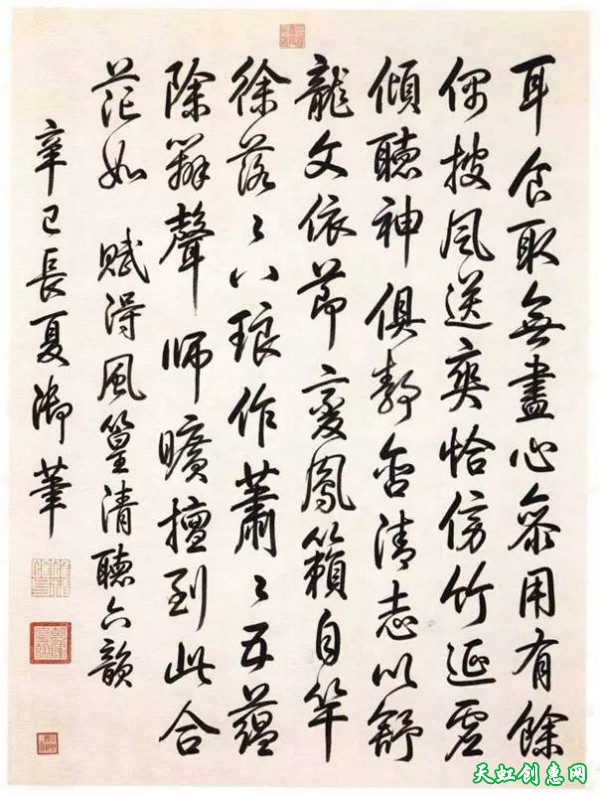 耳食取無盡心齋用有餘
偶披風送爽恰傍竹延虛
傾聽神俱靜含清志以舒
龍文依節變鳳籟自竿
徐落々八琅作蕭々五蘊
除辨聲師曠擅到此合
茫如 賦得風篁清聽六韻
辛巳長夏御筆
天虹创惠网